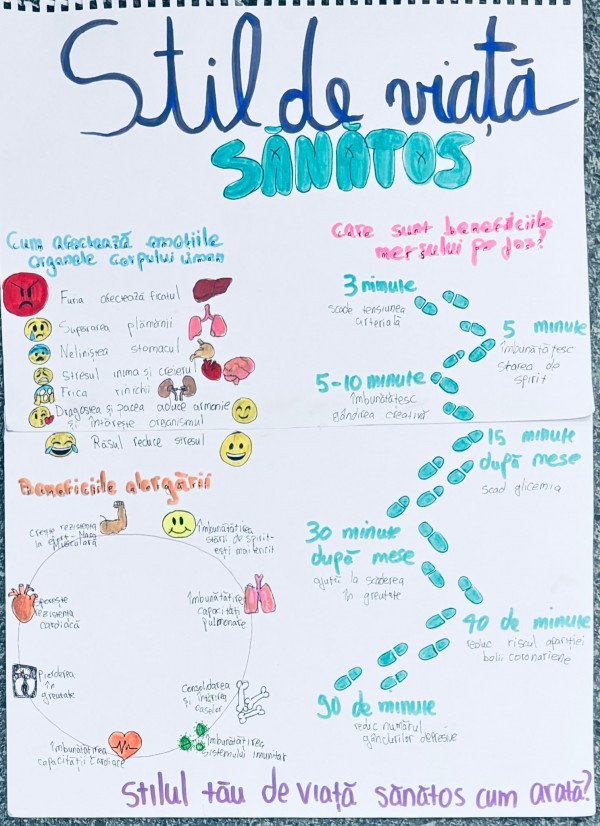 Stil de viață
SĂNĂTOS
Cum afectează emoțiile
organele corpului uman
Furia afectează ficatul
Supărarea plămânii
Neliniștea stomacul
Stresul inima și creierul
Frica rinichii
Dragostea și pacea aduce armonie
și întărește organismul
Râsul reduce stresul
Beneficiile alergării
Crește rezistența
la efort - Masa
musculară
Îmbunătățirea
stării de spirit-
ești mai fericit
Îmbunătățirea
capacități
pulmonare
Consolidarea
și întărirea
oaselor
Îmbunătățirea
sistemului imunitar
Îmbunătățirea
capacității cardiace
Pierderea
în
greutate
rezistența
cardiacă
Care sunt beneficiile
mersului pe jos?
3 minute
scade tensiunea
arterială
5 minute
îmbunătățesc
starea de
spirit
5-10 minute
îmbunătățesc
gândirea creativă
15 minute
după mese
scad glicemia
30 minute
după mese
ajută la scăderea
în greutate
40 de minute
reduc riscul apariției
bolii coronariene
90 de minute
reduc numărul
gândurilor depresive
Stilul tău de viață sănătos cum arată?